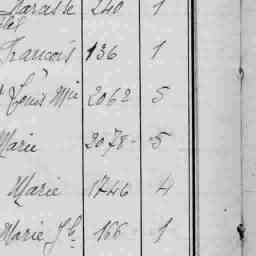 240 1
François 136 1
Louis Mie 2062 5
Marie 2078 5
Marie 1746 4
Marie J h 166 1